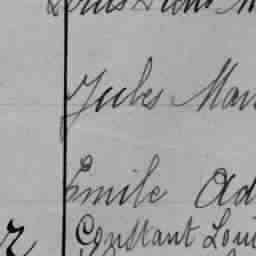 Jules Mar
Emile Ad
Constant Loui